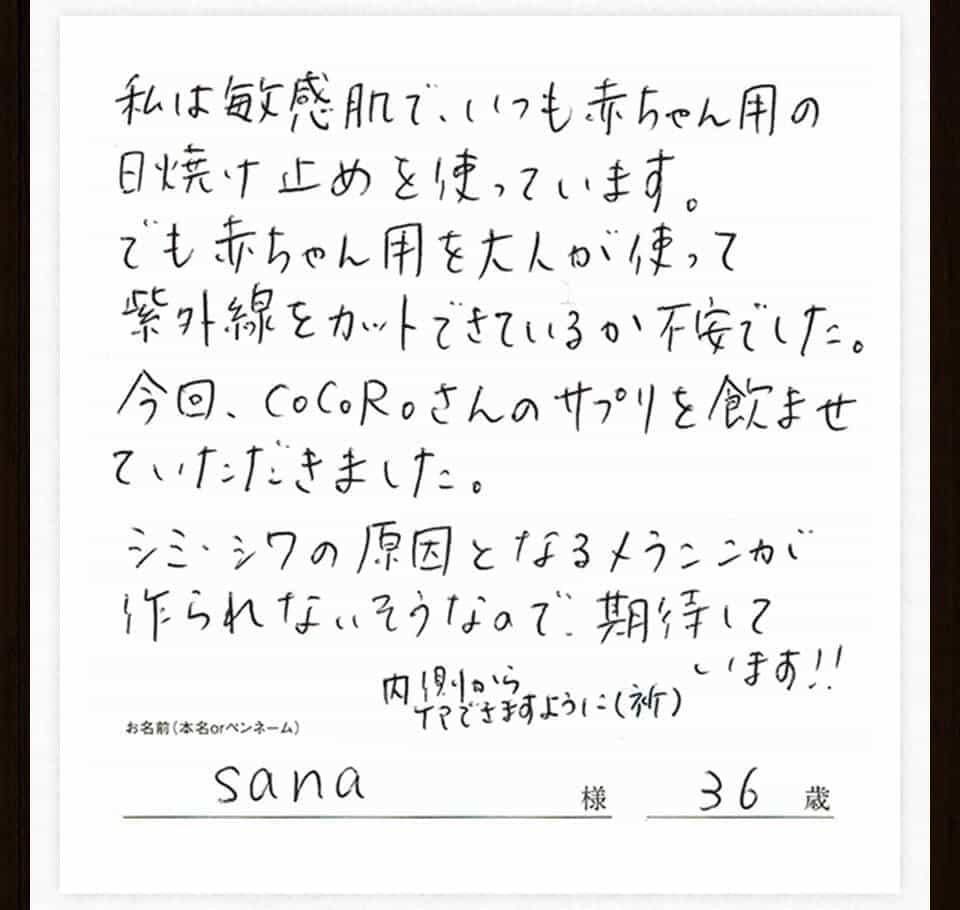 私は敏感肌で、いつも赤ちゃん用の
日焼け止めを使っています。
でも赤ちゃん用を大人が使って
紫外線をカットできているか不安でした。
今回、CoCoRoさんのサプリを飲ませ
ていただきました。
シミ・シワの原因となるメラニンが
作られないそうなので、期待して
います!!
内側から
ケアできますように(祈)
お名前(本名orペンネーム)
sana 様 36 歳